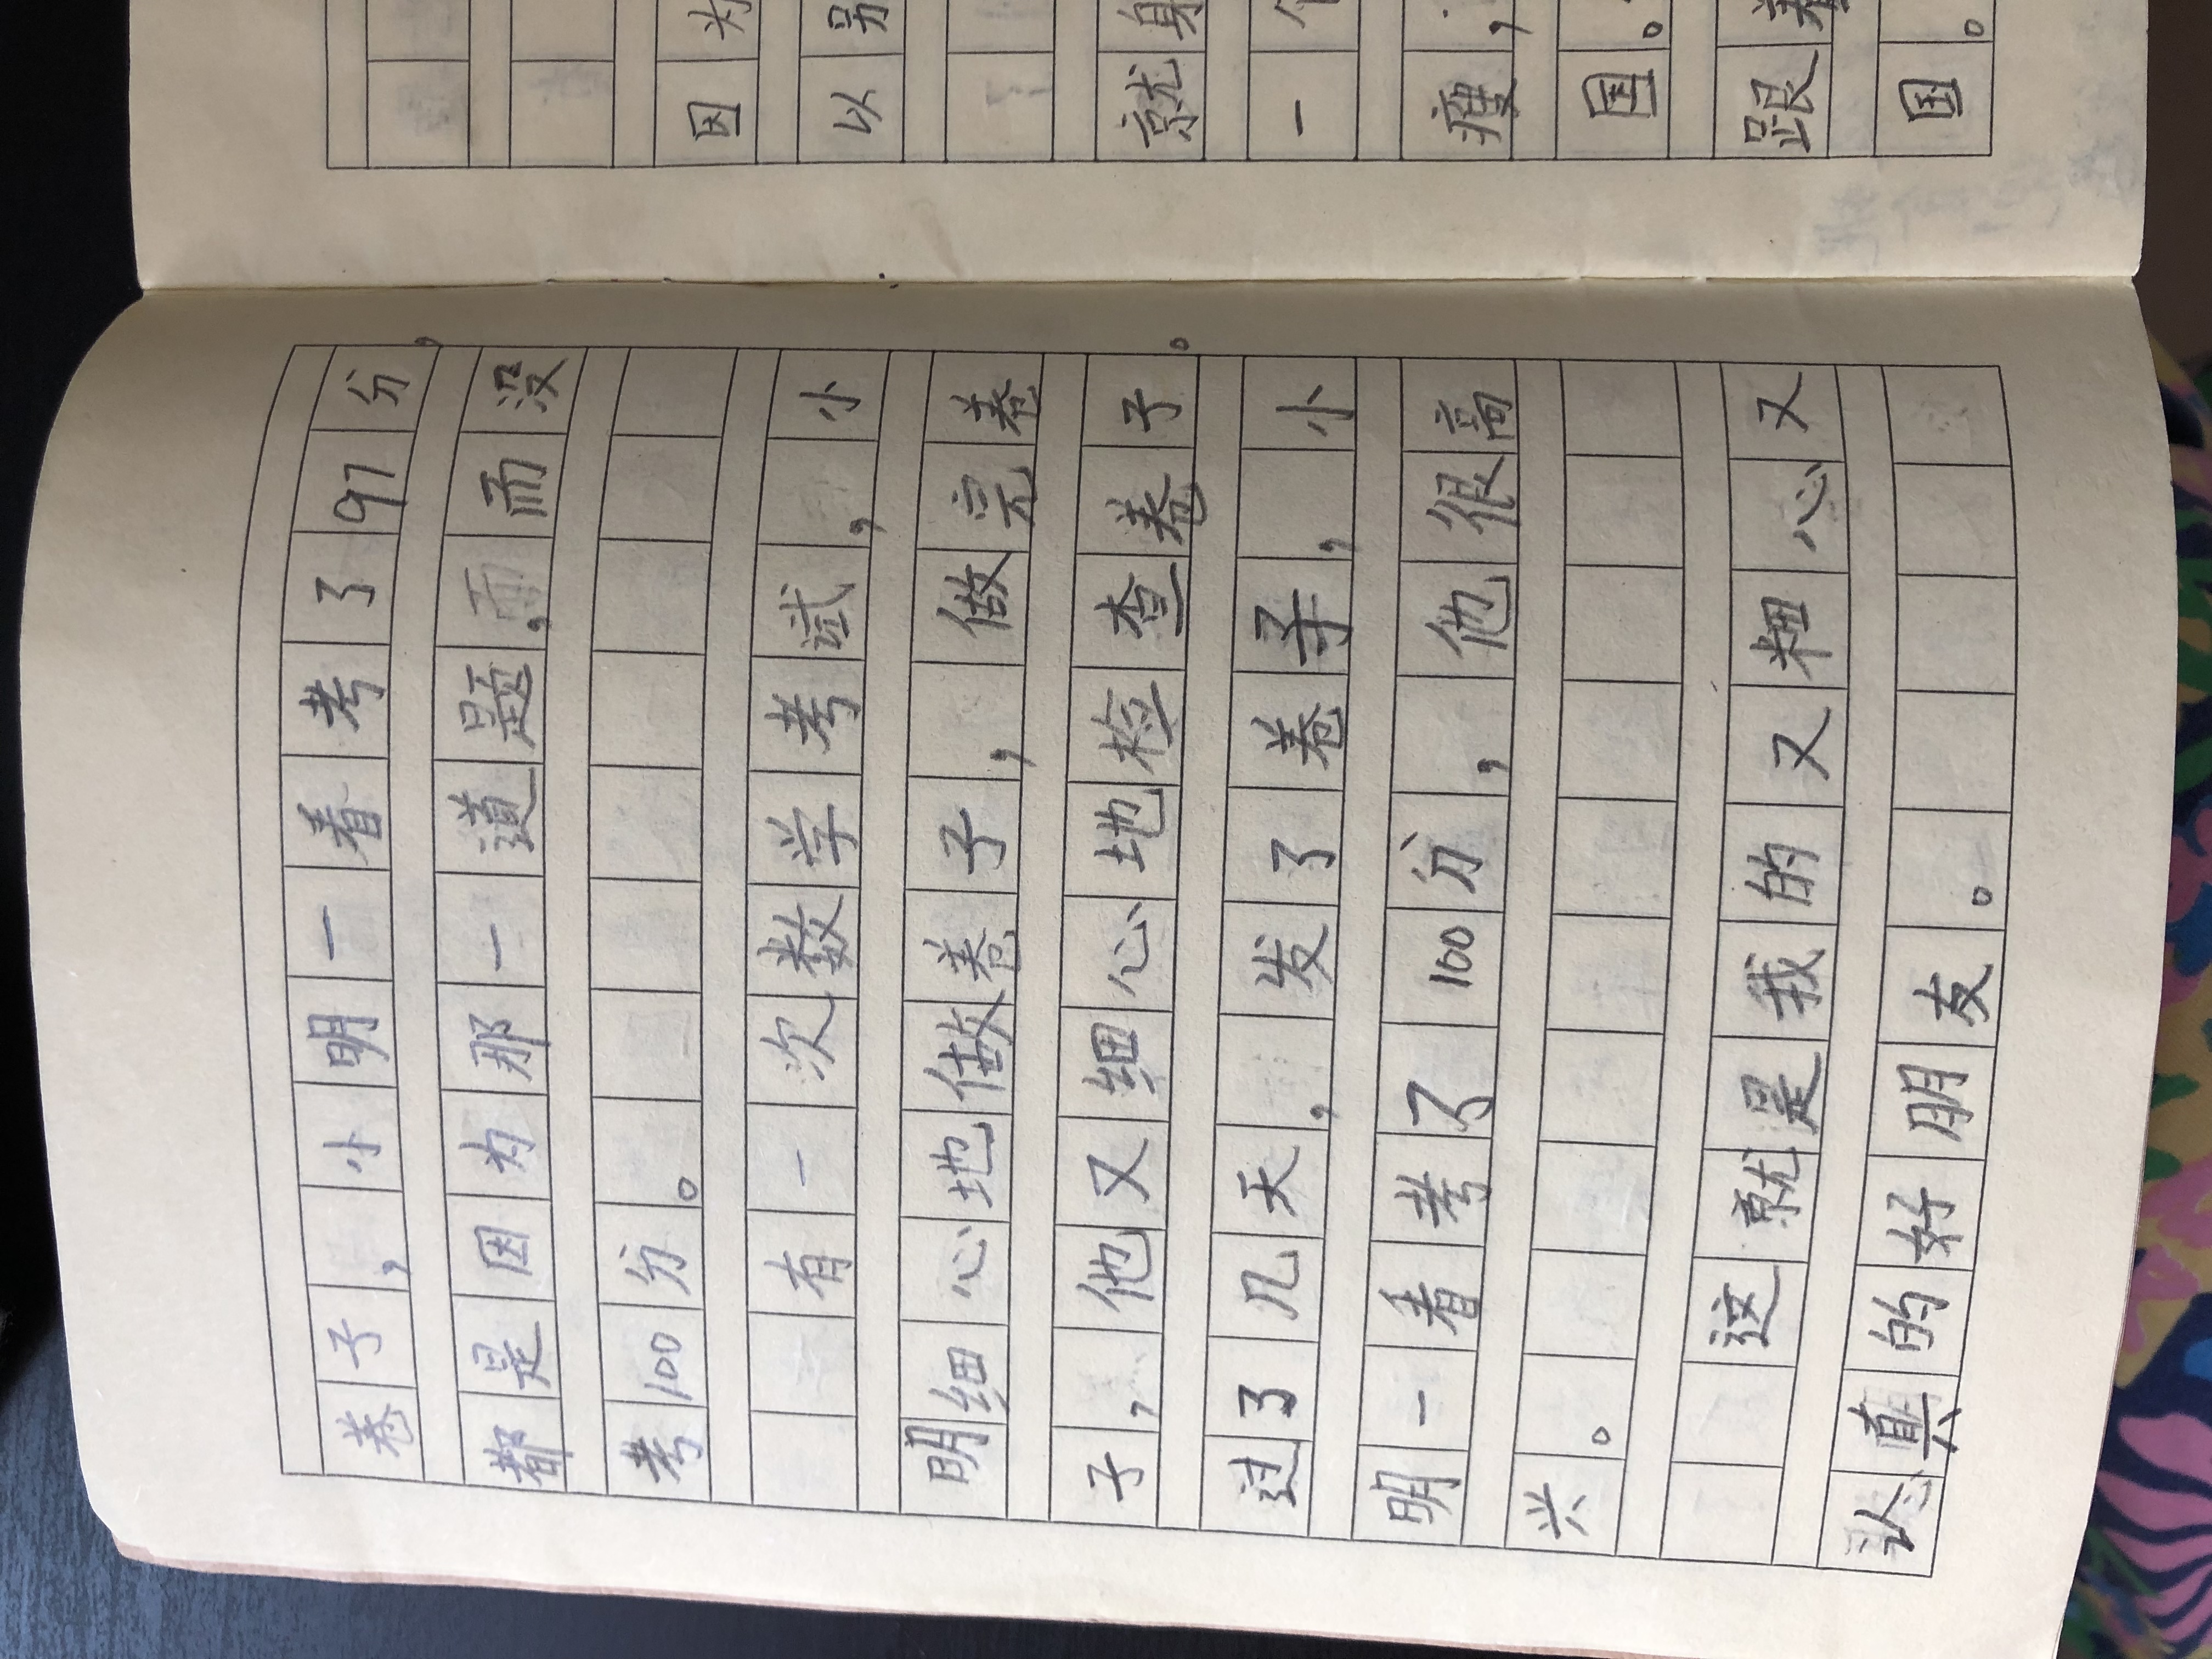 卷子,小明一看考了97分,
都是因为那一道题,而没
考100分。
有一次数学考试,小
明细心地做卷子,做完卷
子,他又细心地检查卷子。
过了几天,发了卷子,小
明一看考了100分,他很高
兴。
这就是我的又粗心又
认真的好朋友。
因为
以
就身
一个
瘦,
国。
跟
国。